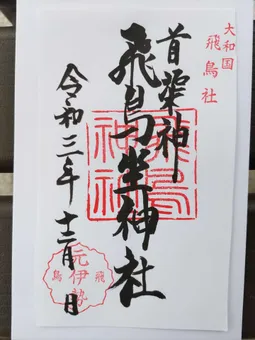 大和国
飛鳥社
首渠神
飛鳥坐神社
令和三年十二月日
飛鳥
元伊勢